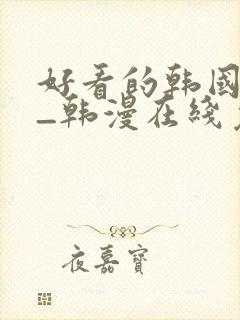 好看的韩国
_韩漫在线
夜嘉宝